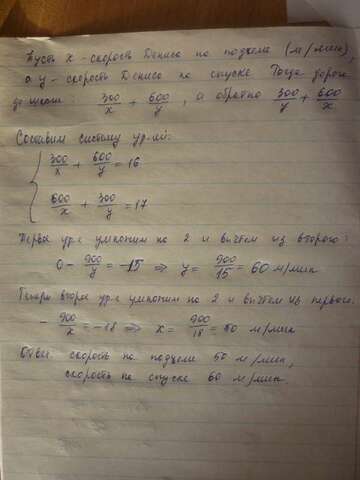 Пусть x - скорость Дениса на подъеме (м/мин),
а y - скорость Дениса на спуске. Тогда дорога
до школы: 300/x + 600/y, а обратно 300/y + 600/x
Составим систему ур-ий:
{ 300/x + 600/y = 16
600/x + 300/y = 17
Первое ур-е умножим на 2 и вычтем из второго:
0 - 900/y = -15 ⇒ y = 900/15 = 60 м/мин
Теперь второе ур-е умножим на 2 и вычтем из первого:
- 900/x = -18 ⇒ x = 900/18 = 50 м/мин
Ответ: скорость на подъеме 50 м/мин,
скорость на спуске 60 м/мин.